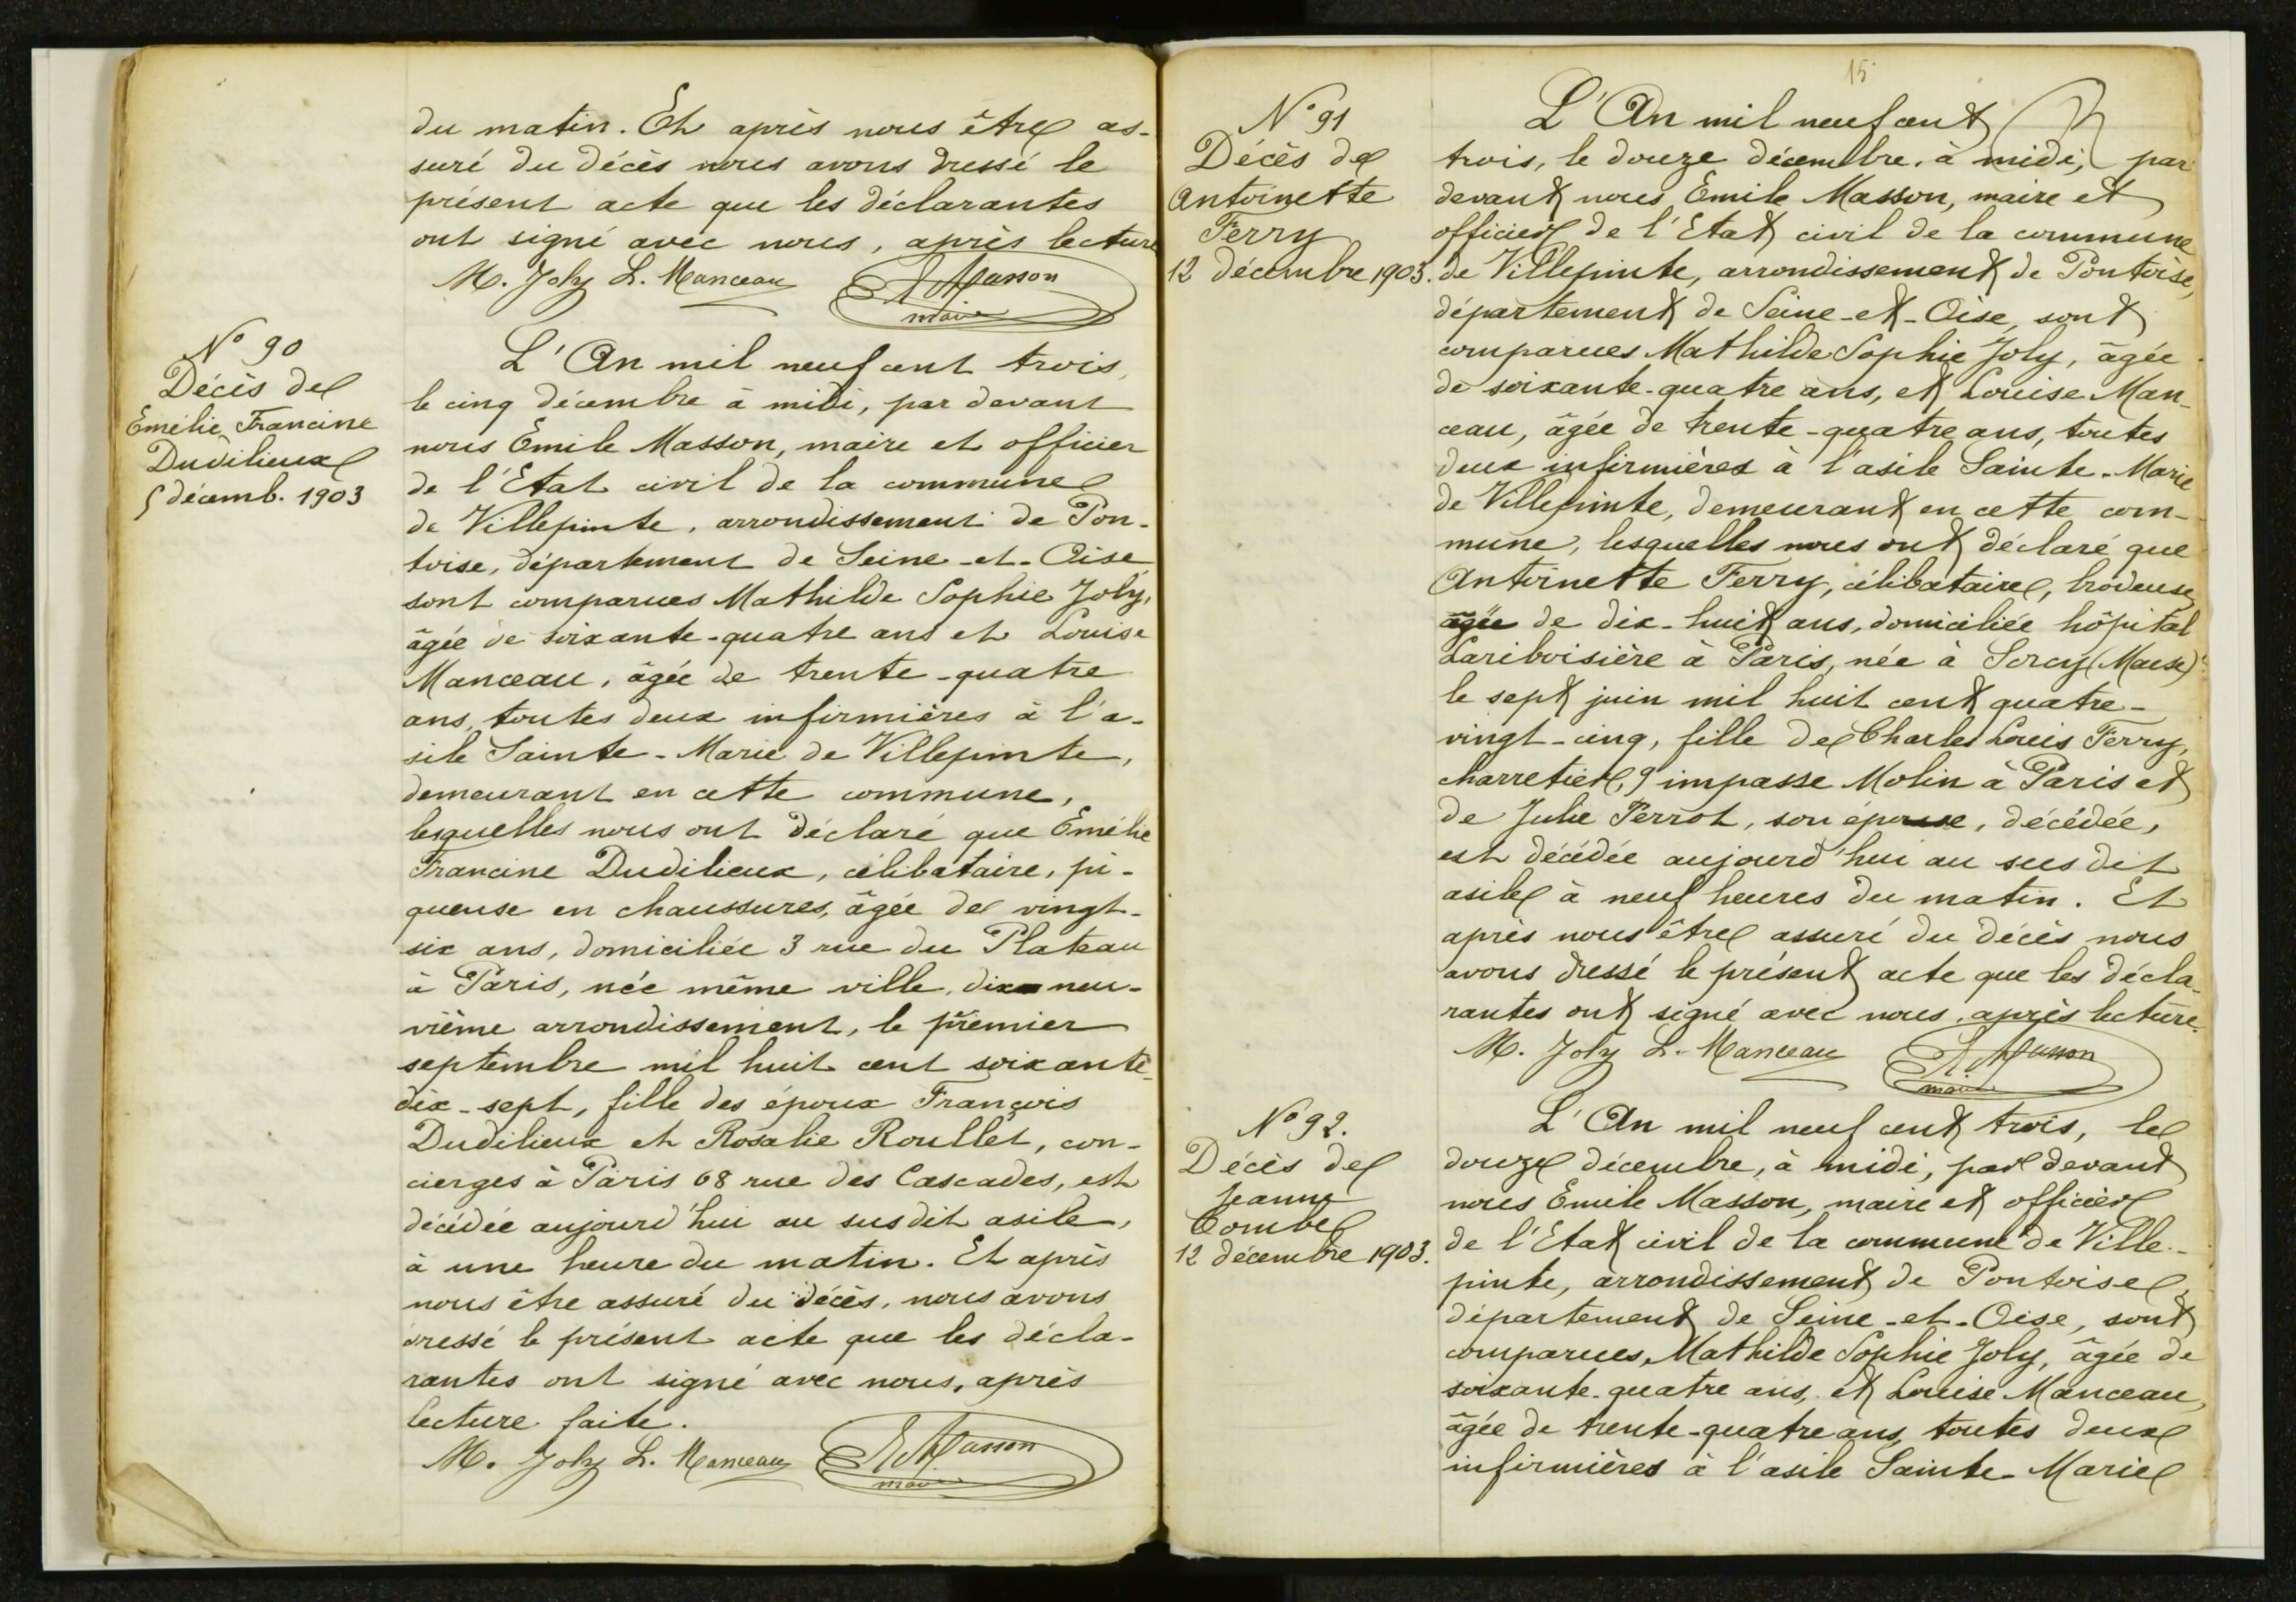 du matin. Et après nous être as-
suré du décès nous avons dressé le
présent acte que les déclarantes
ont signé avec nous, après lecture
M. Joly L. Manceau E Masson
maire
N° 90
Décès de
Emélie Francine
Dudilieux
5 décemb. 1903
L'An mil neuf cent trois,
le cinq décembre à midi, par devant
nous Emile Masson, maire et officier
de l'Etat civil de la commune
de Villepinte, arrondissement de Pon-
toise, département de Seine-et-Oise
sont comparues Mathilde Sophie Joly,
âgée de soixante-quatre ans et Louise
Manceau, âgée de trente-quatre
ans, toutes deux infirmières à l'a-
sile Sainte-Marie de Villepinte,
demeurant en cette commune,
lesquelles nous ont déclaré que Emélie
Francine Dudilieux, célibataire, pi-
queuse en chaussures, âgée de vingt-
six ans, domiciliée 3 rue du Plateau
à Paris, née même ville, dix neu-
vième arrondissement, le premier
septembre mil huit cent soixante-
dix-sept, fille des époux François
Dudilieux et Rosalie Roullet, con-
cierges à Paris 68 rue des Cascades, est
décédée aujourd'hui au susdit asile,
à une heure du matin. Et après
nous être assuré du décès, nous avons
dressé le présent acte que les décla-
rantes ont signé avec nous, après
lecture faite.
M. Joly L. Manceau E Masson
maire
15
N° 91
Décès de
Antoinette
Ferry
12 décembre 1903.
L'An mil neuf cent
trois, le douze décembre, à midi, par
devant nous Emile Masson, maire et
officier de l'Etat civil de la commune
de Villepinte, arrondissement de Pontoise,
département de Seine-et-Oise, sont
comparues Mathilde Sophie Joly, âgée
de soixante-quatre ans, et Louise Man-
ceau, âgée de trente-quatre ans, toutes
deux infirmières à l'asile Sainte-Marie
de Villepinte, demeurant en cette com-
mune, lesquelles nous ont déclaré que
Antoinette Ferry, célibataire, brodeuse,
âgée de dix-huit ans, domiciliée hôpital
Lariboisière à Paris, née à Sorcy (Meuse)
le sept juin mil huit cent quatre-
vingt-cinq, fille de Charles Louis Ferry,
charretier, 9 impasse Molin à Paris et
de Julie Perrot, son épouse, décédée,
est décédée aujourd'hui au sus dit
asile à neuf heures du matin. Et
après nous être assuré du décès nous
avons dressé le présent acte que les décla-
rantes ont signé avec nous, après lecture.
M. Joly L. Manceau E Masson
maire
N° 92.
Décès de
Jeanne
Combe
12 décembre 1903.
L'An mil neuf cent trois, le
douze décembre, à midi, par devant
nous Emile Masson, maire et officier
de l'Etat civil de la commune de Ville-
pinte, arrondissement de Pontoise,
département de Seine-et-Oise, sont
comparues, Mathilde Sophie Joly, âgée de
soixante-quatre ans, et Louise Manceau,
âgée de trente-quatre ans, toutes deux
infirmières à l'asile Sainte-Marie